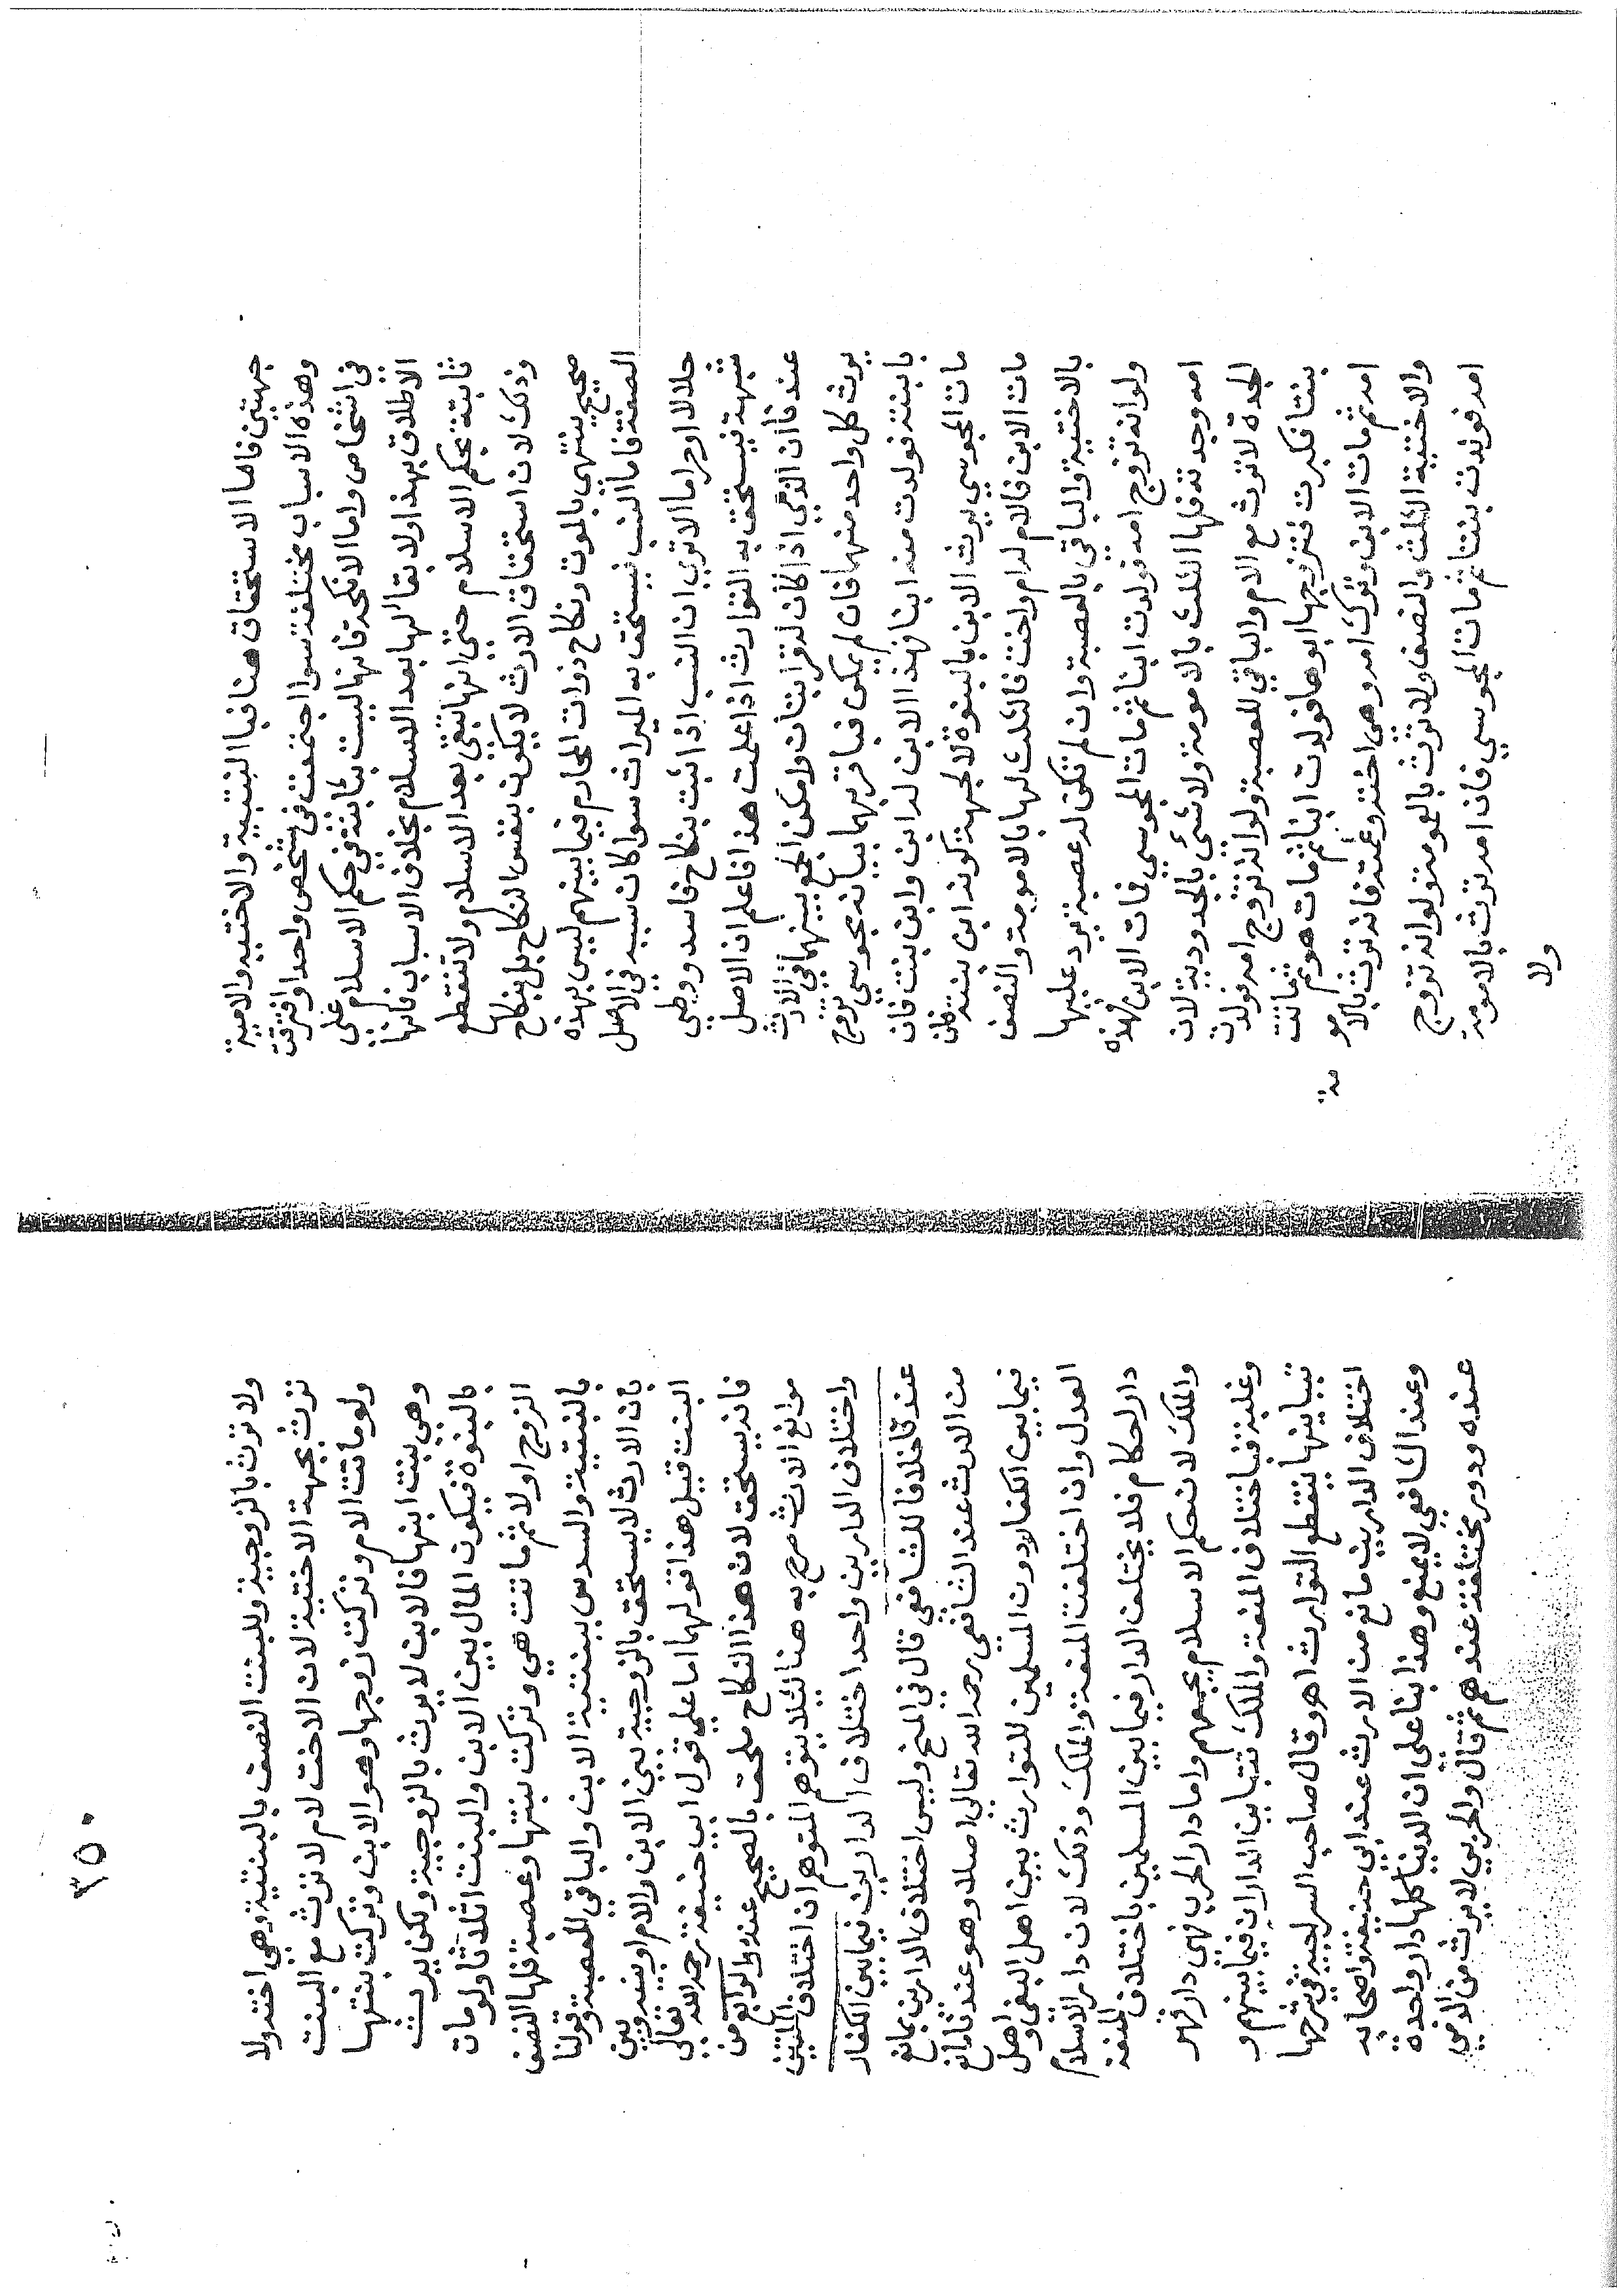 جهتين فاما الاستحقاق هنا فبا النبتية والاختيه والامية
وهذه الاسباب مختلفة سوا اجتمعت في شخص واحد او افترقت
في اشخاص واما الانكحة فانها ليست بثابتة في حكم الاسلام علي
الاطلاق بهذا ولا بقا لها بعد الاسلام بخلاف الاسباب فانها
ثابتة بحكم الاسلام حتي انها تبقي بعد الاسلام ولا تنقطع
وذلك لان استحقاق الارث لا يكون بنفس النكاح بل بنكاح
صحيح ينتهي بالموت ونكاح ذوات المحارم فيما بينهم ليس بهذه
الصفة فاما النسب فيستحق به الميراث سوا كان سببه في الاصل
حلالا او حراما الا تري ان النسب اذا ثبت بنكاح فاسد ووطي
شبهة فيستحق به التوارث اذا علمت هذا فاعلم ان الاصل
عندنا ان الذمي اذا كان له قرابتان وامكن الجمع بينهما في الارث
يرث كل واحد منهما فان لم يمكن فباقربهما بيانه مجوسي تزوج
بابنته فولدت منه ابنا فهذا الابن له ابن وابن بنت فان
مات المجوسي يرث الابن بالبنوة لا بجهة كونه ابن بنته فان
مات الابن فالام له ام واخت فالثلث لها بالامومة والنصف
بالاختية والباقي بالعصبة وان لم تكن له عصبة يرد عليها
ولو انه تزوج امه فولدت ابنا ثم مات المجوسي فمات الابن فهذه
امه وجدته فلها الثلث بالامومة ولا شئ بالجدودية لان
الجدة لا ترث مع الام والباقي للعصبة ولو انه تزوج امه فولدت
بنتا فكبرت فتزوجها ابوها فولدت ابنا ثم مات هو ثم ماتت
امه ثم مات الابن وترك امه وهي اخته وعمته فانه ترث بالامو
مة
والاختية الثلث والنصف ولا ترث بالعمومة ولو انه تزوج
امه فولدت بنتا ثم مات المجوسي فان امه ترث بالامومة
ولا
٣٥٠
ولا ترث بالزوجية وللبنت النصف بالبنتية وهي اخته ولا
ترث بجهة الاختية لان الاخت لام لا ترث مع البنت
ولو ماتت الام وتركت زوجها وهو الابن وتركت بنتها
وهي بنت ابنها فالابن لا يرث بالزوجية ولكن يرث
بالبنوة فيكون المال بين الابن والبنت اثلاثا ولو مات
الزوج اولا ثم ماتت هي وتركت بنتها وعصبة فلها النصف
بالبنتية والسدس ببنتية الابن والباقي للعصبة وقولنا
بان الارث لا يستحق بالزوجية بين الابن والام او بينه وبين
البنت قيل هذا قولهما اما علي قول ابي حنيفة رحمه الله تعالي
فانه يستحق لان هذا النكاح ملحق بالصحيح عنده والرابع من
موانع الارث صرح به هنا لئلا يتوهم المتوهم ان اختلاف الملتين
واختلاف الدارين واحد اختلاف الدارين فيما بين الكفار
عندنا خلافا للشافعي قال في المنح وليس اختلاف الدارين بمانع
من الارث عند الشافعي رحمه الله تعالي اصلا وهو عندنا مانع
فيما بين الكفار دون المسلمين للتوارث بين اهل البغي واهل
العدل وان اختلفت المنعة والملك وذلك لان دار الاسلام
دار احكام فلا يختلف الدار فيما بين المسلمين باختلاف المنعة
والملك لان حكم الاسلام يجمعهم واما دار الحرب فهي دار قهر
وغلبة فباختلاف المنعة والملك تتباين الداران فيما بينهم و
بتباينها ينقطع التوارث اهـ وقال صاحب السراجية في شرحها
اختلاف الدارين مانع من الارث عند ابي حنيفة واصحابه
وعند الشافعي لا يمنع وهذا بنا علي ان الدنيا كلها دار واحدة
عنده ودور مختلفة عندهم ثم قال والحربي لا يرث من الذمي